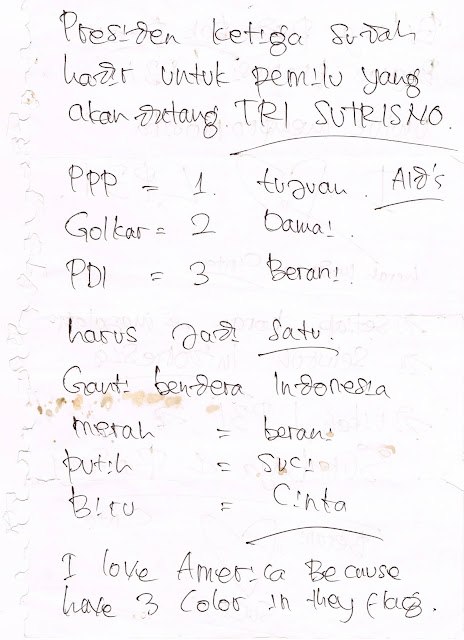 Presiden ketiga sudah
hadir untuk pemilu yang
akan datang. TRI SUTRISNO.
PPP = 1. tujuan. AID's
Golkar = 2 Damai.
PDI = 3 Berani.
harus jadi satu.
Ganti bendera Indonesia
merah = berani
putih = suci
Biru = Cinta
I love America Because
have 3 color in they flag.